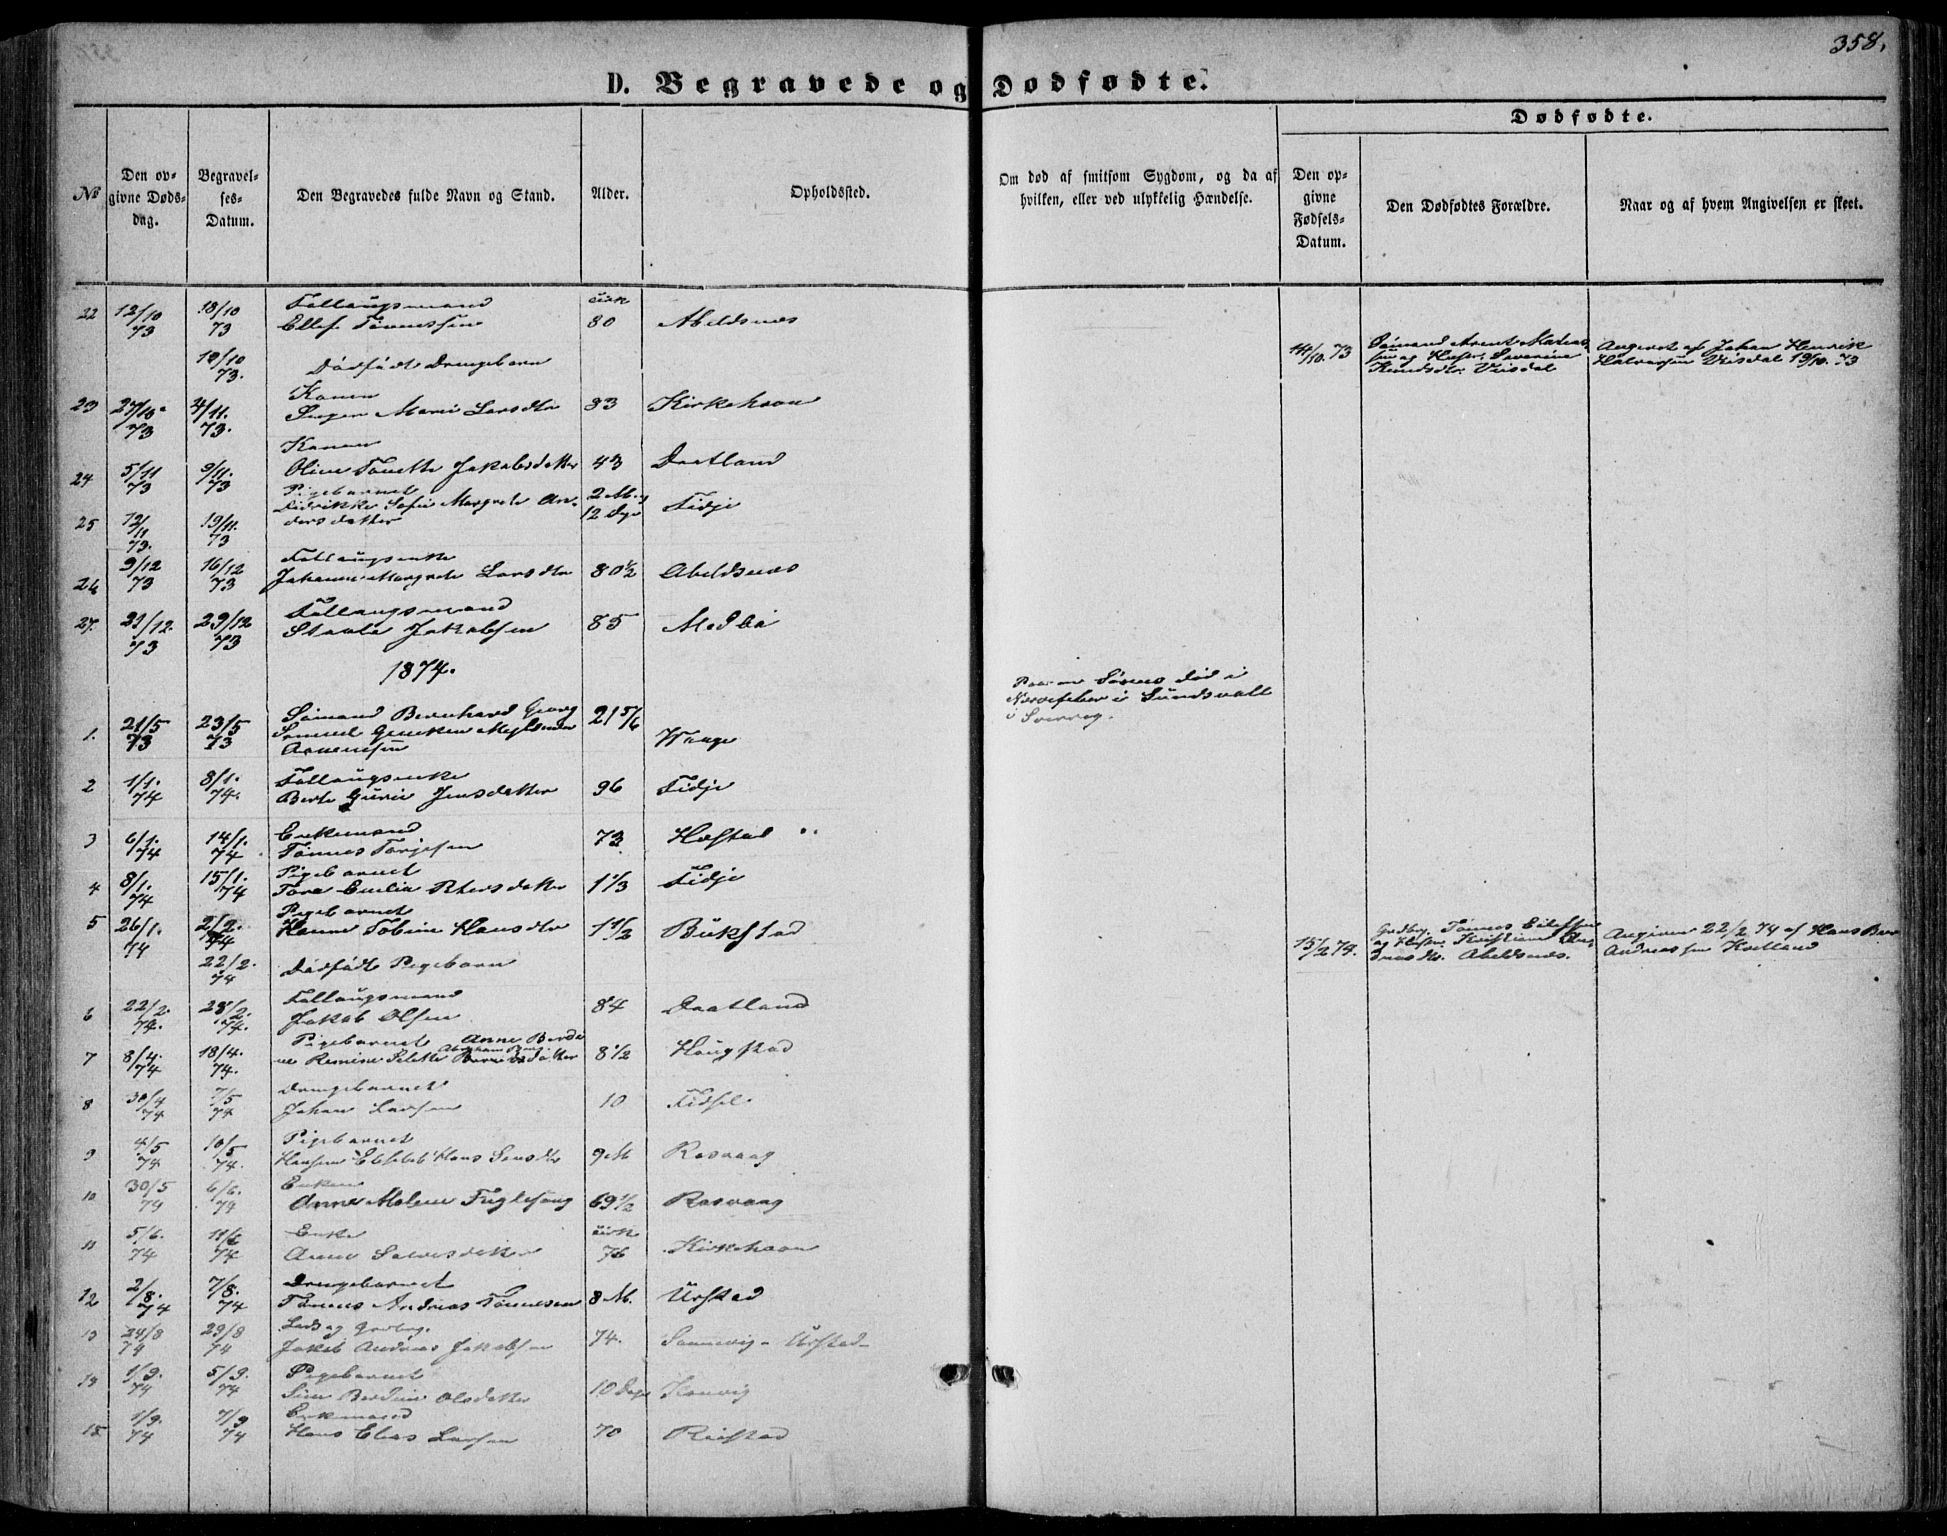 358.
D. Begravede og Dødfødte.
Dødfødte.
№
Den opgivne Dødsdag.
Begravelses-Datum.
Den Begravedes fulde Navn og Stand.
Alder.
Opholdssted.
Om død af smitsom Sygdom, og da af hvilken, eller ved ulykkelig Hændelse.
Den opgivne Fødsels-Datum.
Den Dødfødtes Forældre.
Naar og af hvem Angivelsen er skeet.
22 12/10 73 18/10 73 Follaugsmand Ellef Tønnessen cirk 80 Abeldsnes
19/10 73. Dødfødt Drengebarn 14/10. 73 Sømand Arent Mathias og Hustru Severine Knudsdtr. Angivet af Johan Henrik Halvorsen 19/10. 73
23 27/10. 73 4/11. 73. Konen Inger Marie Larsdtr 83 Kirkehavn
24 5/11 73 9/11. 73 Konen Oline Tonette Jakobsdatter 43 Daatland
25 12/11 73. 19/11. 73 Pigebarnet Didrikke Sofie Margrete Andersdatter 2 M. 12 Dge Fidje
26 9/12 73 16/12 73 Follaugsenke Johanne Margrete Larsdtr 80 1/2 Abeldsnes
27. 21/12. 73 29/12 73 Follaugsmand Staale Jakobsen 85 Medbø
1874.
1. 21/5 73 23/5 73 Sømand Bernhard Georg Arnensen 21 5/6 Waage Død i Nervefeber i Sundsvall i Sverrig.
2 1/1. 74 8/1. 74. Follaugsenke Berte Gurie Jensdatter 96 Fidje
3 6/1. 74 14/1. 74 Enkemand Tønnes Torjesen 73 Hæstad
4 8/1. 74 15/1. 74 Pigebarnet Tora Emilia Petersdatter 1 1/3 Fidje
5 26/1. 74 2/2. 74 Pigebarnet Hanne Tobine Hansdtr 1 1/2 Bukstad
22/2. 74 Dødfødt Pigebarn 15/2 74. Gaardbrg. Tønnes Eilefsen og Hustru Kristiane Andreasdtr. Abeldsnes. Angiven 22/2 74 af Hans Ber Andreassen
6 22/2. 74. 28/2. 74. Follaugsmand Jakob Olsen 84 Daatland
7 8/4. 74 18/4. 74. Pigebarnet Anne Berdine Remine 8 1/2 Haugstad
8 30/4 74 7/5 74 Drengebarnet Johan Larsen 10 Fidsel
9 4/5 74 10/5 74. Pigebarnet Elisabet 9 M Rasvaag
10 30/5 74 6/6. 74 Enken Anne Malene Fuglesang 69 1/2 Rasvaag
11 5/6. 74 11/6 74 Enke Anne Salvesdatter cirk 76 Kirkehavn
12 2/8. 74 7/8. 74 Drengebarnet Tønnes Andreas Tønnesen 8 M. Urstad
13 24/8 74 29/8 74 Lods og Gaardbrg. Jakob Andreas Jakobsen 74. Sannevig - Urstad
14 1/9. 74 5/9. 74 Pigebarnet Sine Berdine Olsdatter 10 Dage
15 1/9. 74 7/9 74 Enkemand Hans Elias Larsen 70